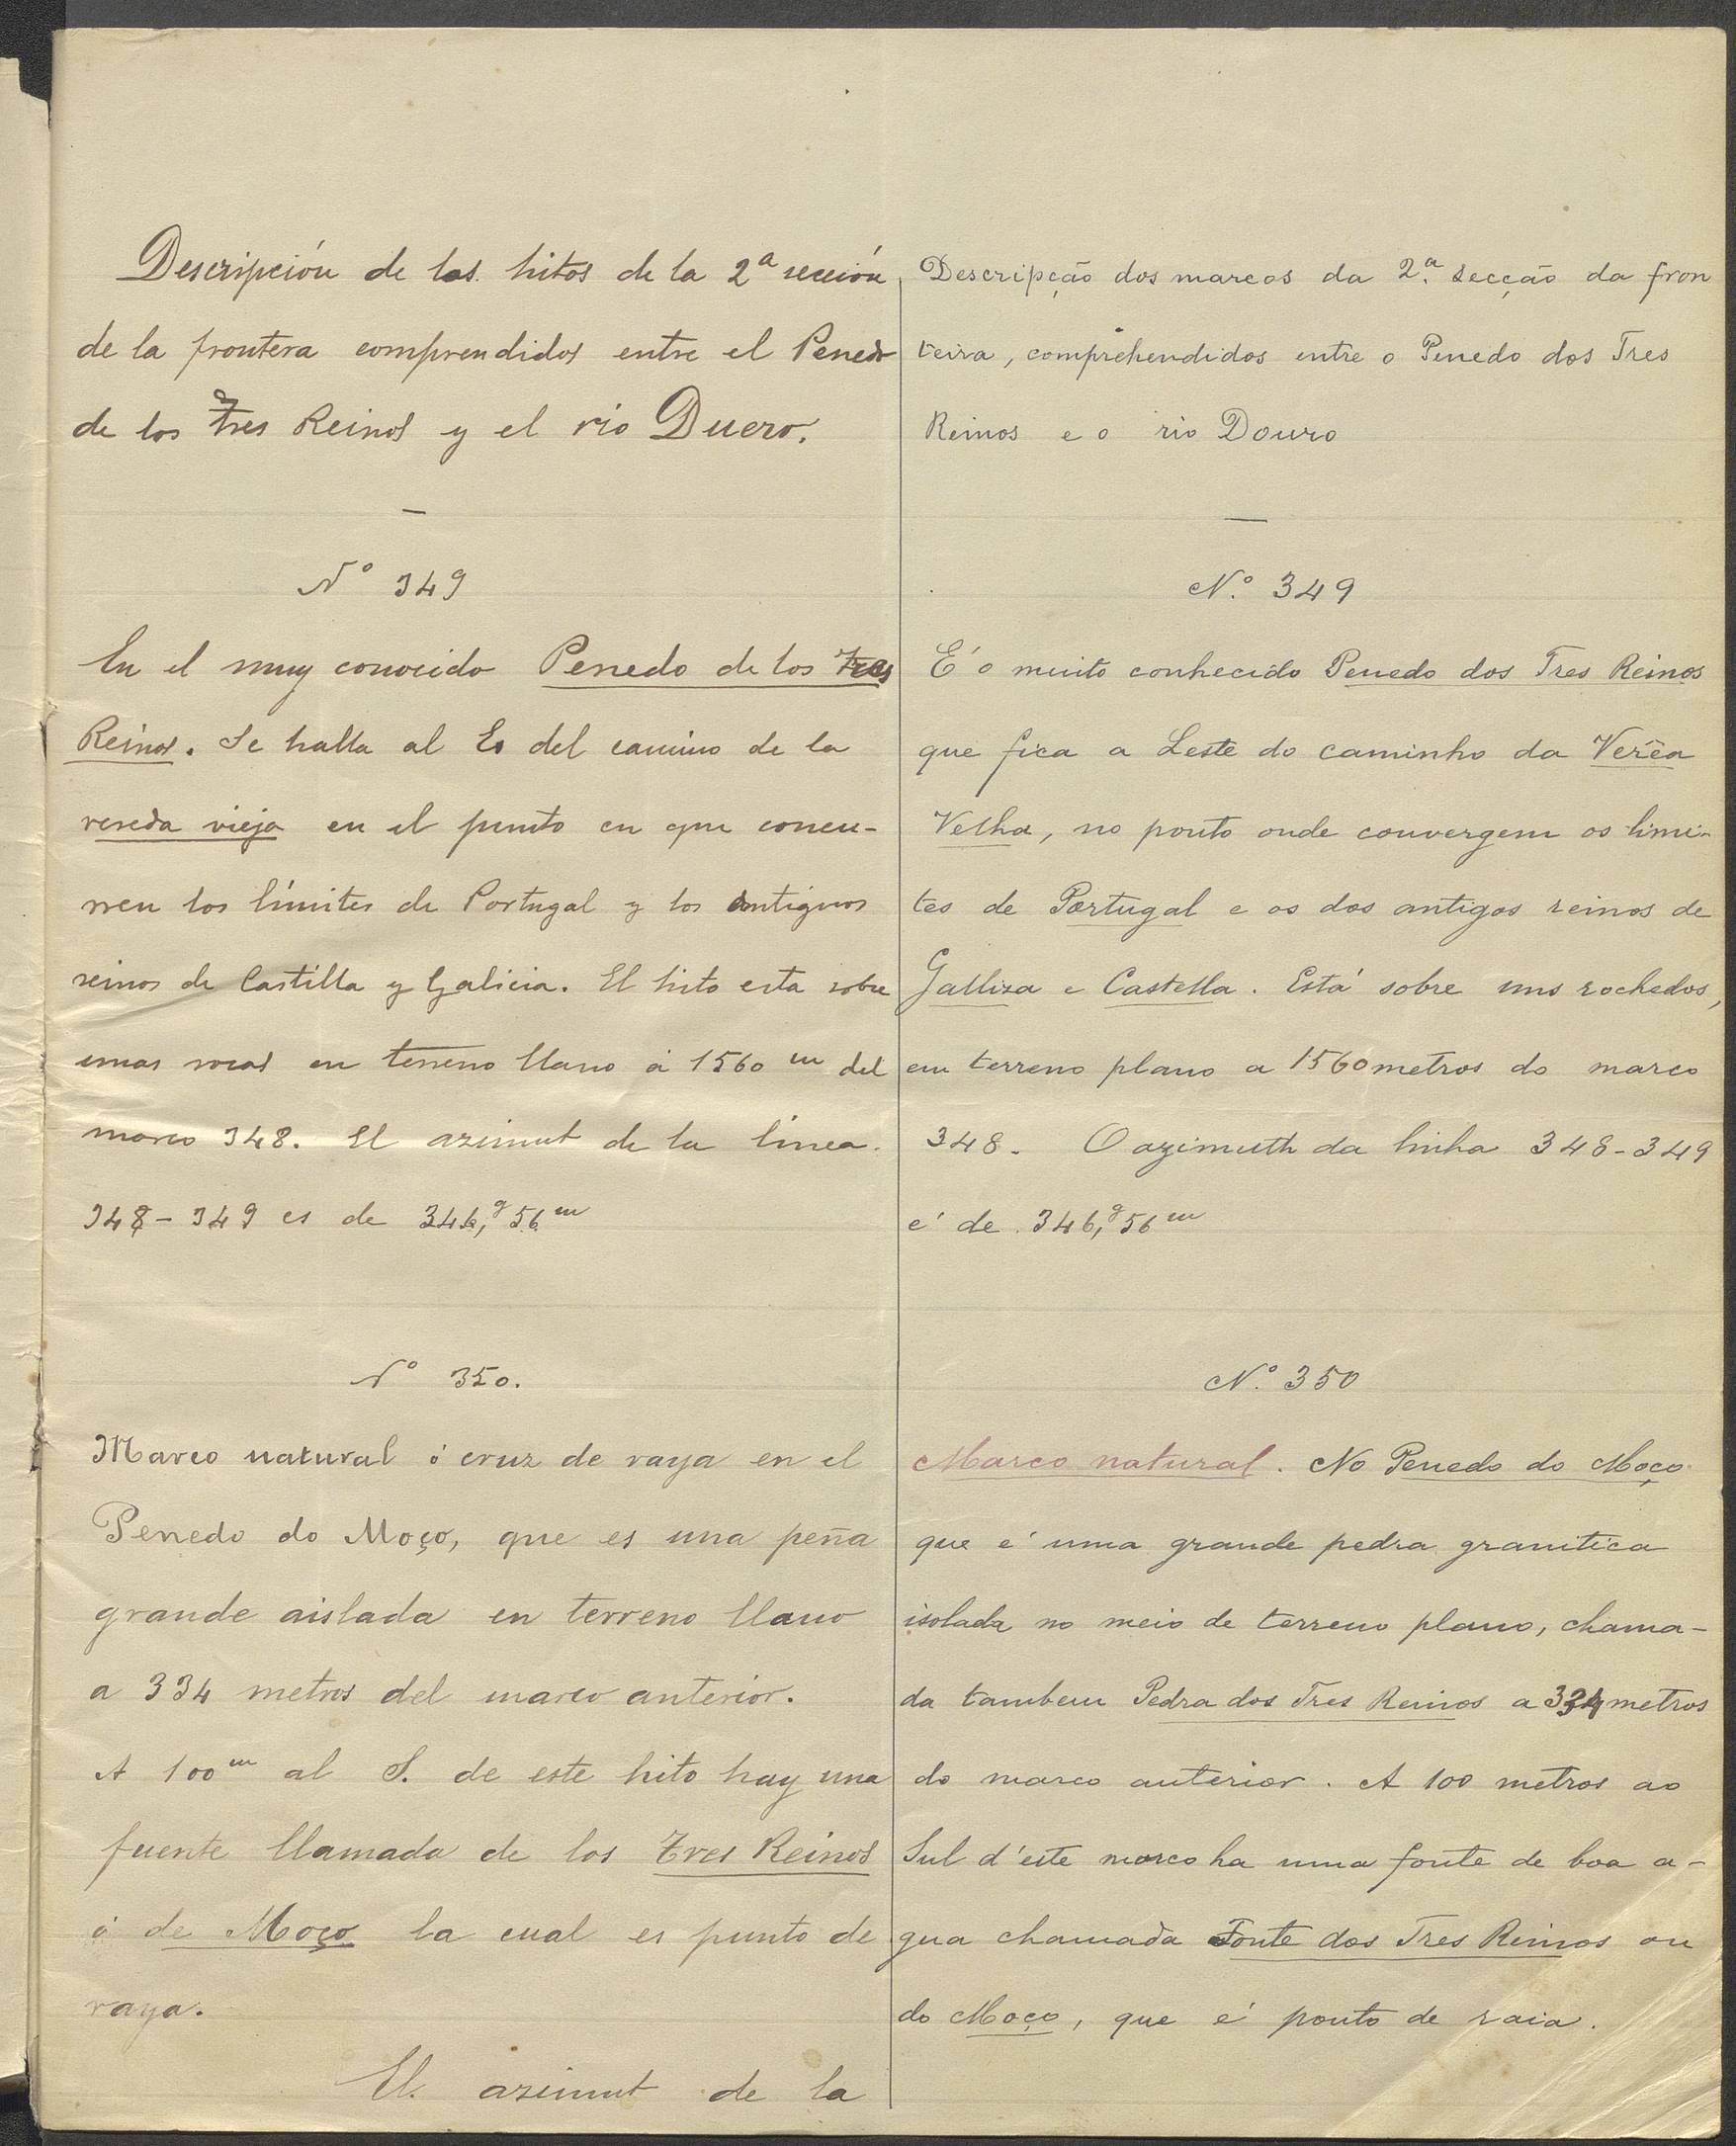 Descripción de los hitos de la 2ª sección
de la frontera comprendidos entre el Penedo
de los Tres Reinos y el río Duero.
—
Nº 349
En el muy conocido Penedo de los Tres
Reinos. Se halla al E. del camino de la
vereda vieja en el punto en que concu-
rren los límites de Portugal y los antiguos
reinos de Castilla y Galicia. El hito esta sobre
unas rocas en terreno llano á 1560 m del
marco 348. El azimut de la línea
348-349 es de 346,g56m
Nº 350.
Marco natural ó cruz de raya en el
Penedo do Moço, que es una peña
grande aislada en terreno llano
a 334 metros del marco anterior.
A 100m al S. de este hito hay una
fuente llamada de los Tres Reinos
ó de Moço la cual es punto de
raya.
El azimut de la
Descripção dos marcos da 2.ª secção da fron
teira, comprehendidos entre o Penedo dos Tres
Reinos e o rio Douro
—
N.º 349
É o muito conhecido Penedo dos Tres Reinos
que fica a Leste do caminho da Verêa
Velha, no ponto onde convergem os limi-
tes de Portugal e os dos antigos reinos de
Galliza e Castella. Está sobre uns rochedos,
em terreno plano a 1560 metros do marco
348. O azimuth da linha 348-349
é de 346,g56m
N.º 350
Marco natural. No Penedo do Moço
que é uma grande pedra granitica
isolada no meio de terreno plano, chama-
da tambem Pedra dos Tres Reinos a 334 metros
do marco anterior. A 100 metros ao
Sul d'este marco ha uma fonte de boa a-
gua chamada Fonte dos Tres Reinos ou
do Moço, que é ponto de raia.